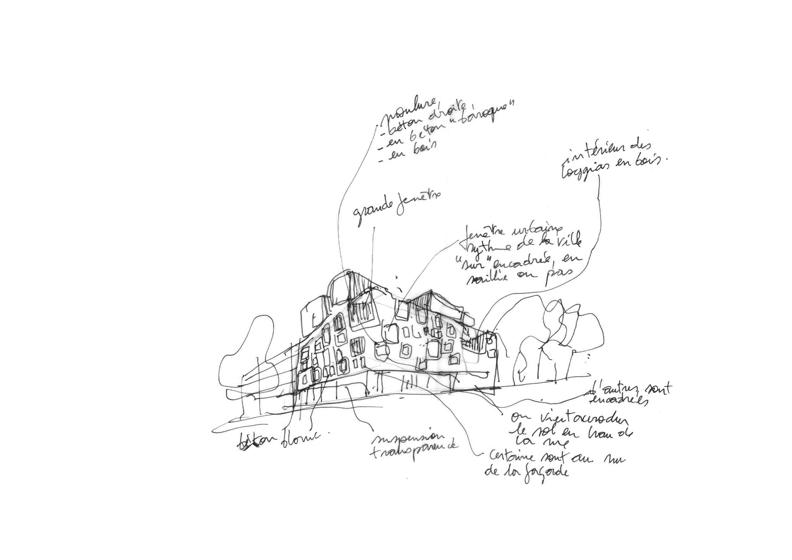 moulure,
- béton droite,
- en béton "baroque"
- en bois
intérieur des
loggias en bois.
grande fenêtre
fenêtre urbaine
rythme de la ville
"sur" encadrée, en
saillie ou pas
d'autres sont
encadrées
on vient
le sol en haut de
la rue
béton blanc.
suspension
transparence
certaine sont au nu
de la façade